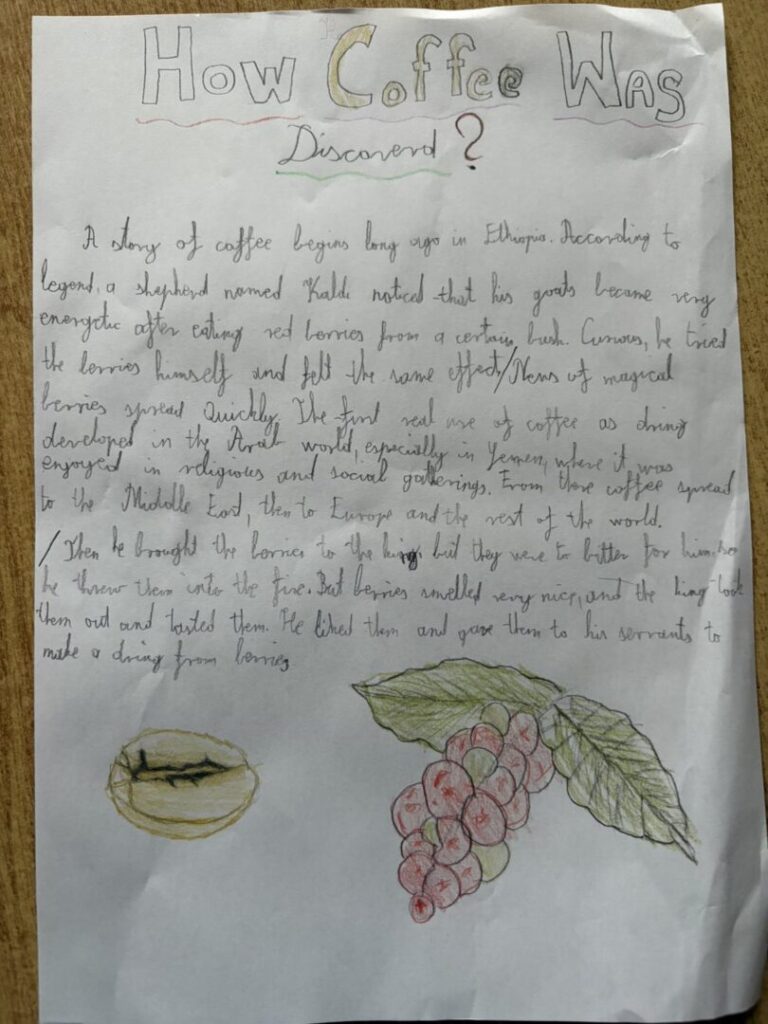 How Coffee Was
Discoverd?
A story of coffee begins long ago in Ethiopia. According to
legend, a shepherd named Kaldi noticed that his goats became very
energetic after eating red berries from a certain bush. Curious, he tried
the berries himself and felt the same effect/News of magical
berries spread quickly. The first real use of coffee as dring
developed in the Arab world, especially in Yemen, where it was
enjoyed in religious and social gatherings. From there coffee spread
to the Middle East, then to Europe and the rest of the world.
/Then he brought the berries to the king, but they were to bitter for him, so
he threw them into the fire. But berries smelled very nice, and the king took
them out and tasted them. He liked them and gave them to his servants to
make a dring from berries